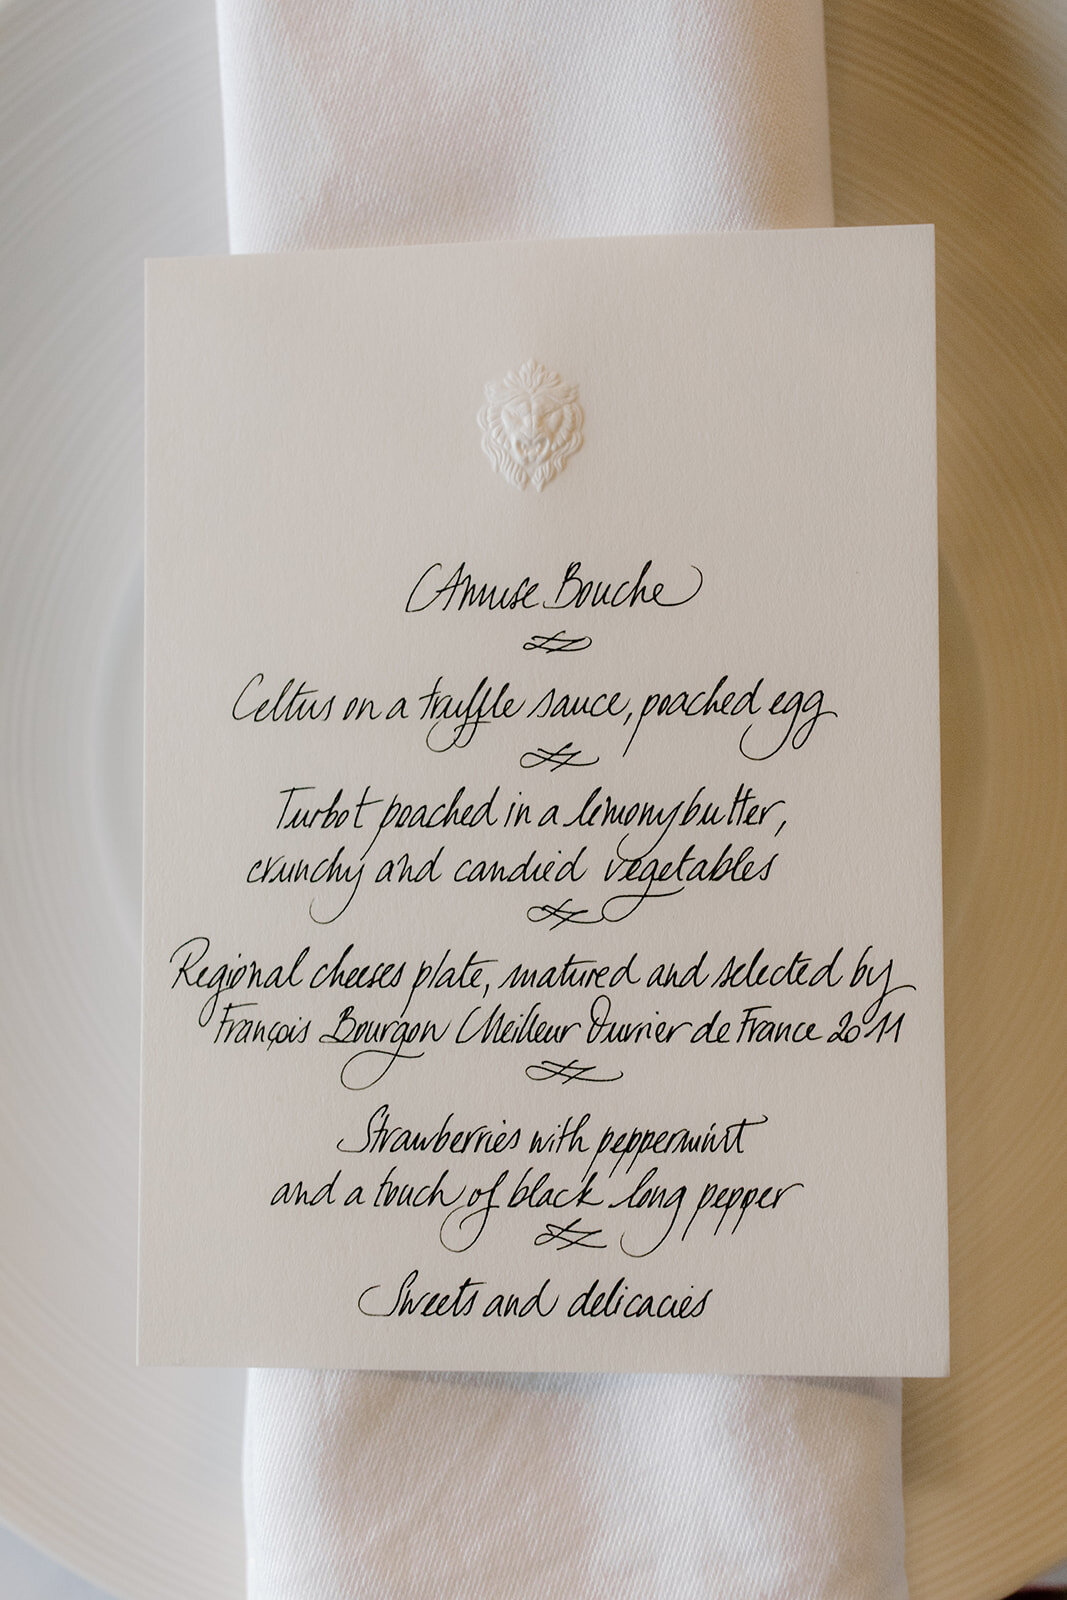 Amuse Bouche
Celtus on a truffle sauce, poached egg
Turbot poached in a lemony butter,
crunchy and candied vegetables
Regional cheeses plate, matured and selected by
François Bourgon Meilleur Ouvrier de France 2011
Strawberries with peppermint
and a touch of black long pepper
Sweets and delicacies